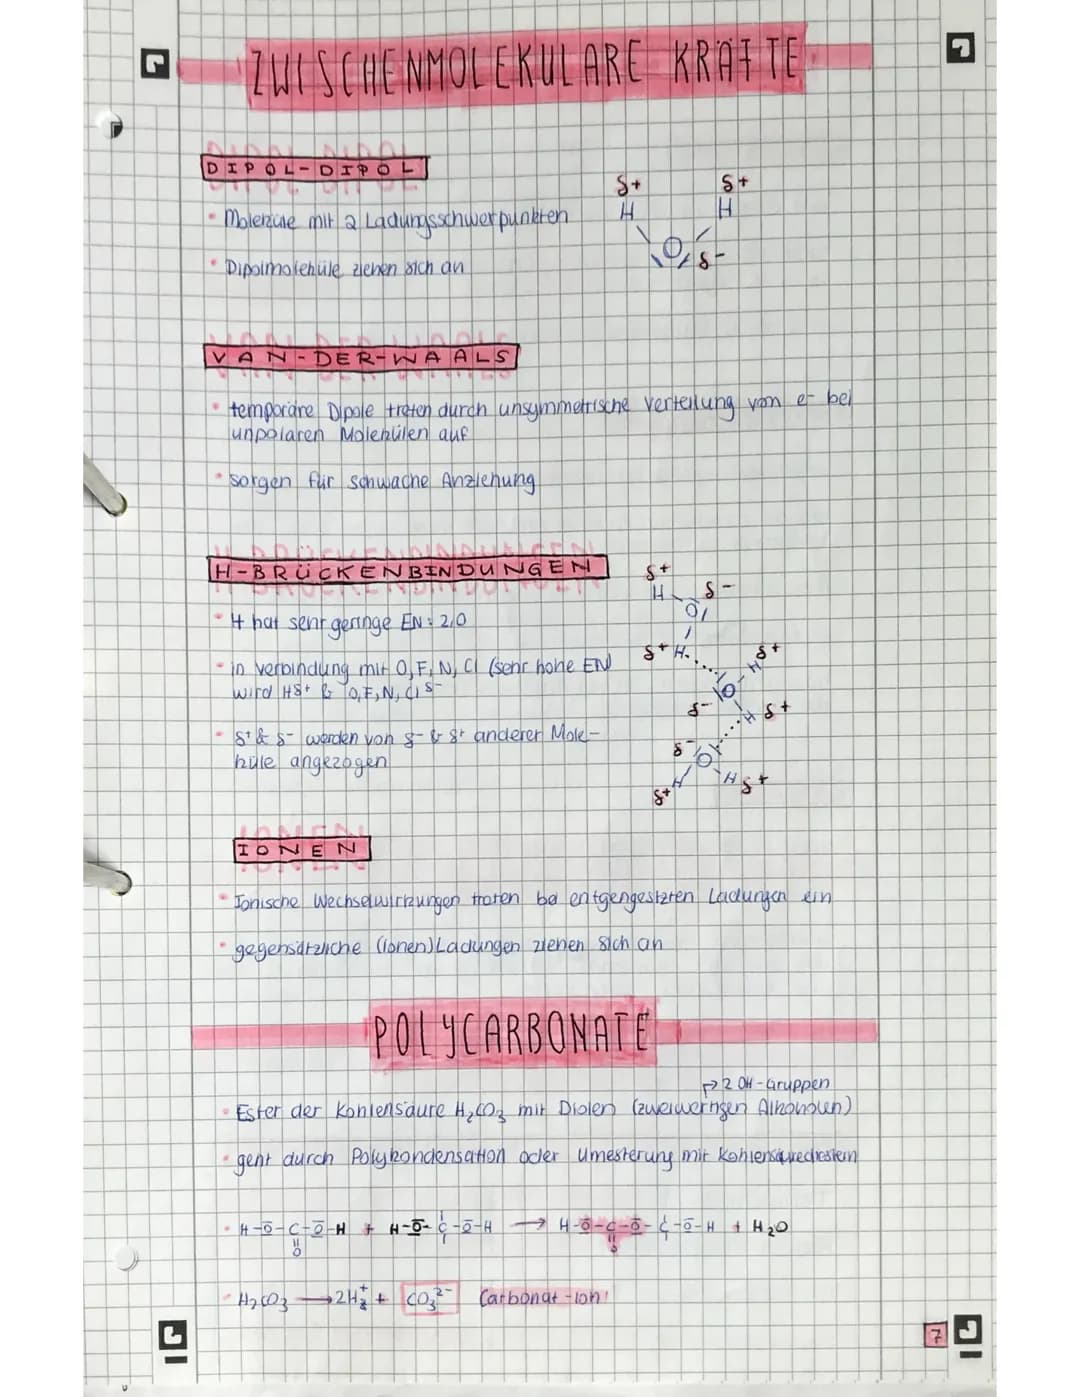 ZWISCHENMOLEKULARE KRÄFTE
DIPOL-DIPOL
• Moleküle mit 2 Ladungsschwerpunkten
• Dipolmoleküle ziehen sich an
δ+ δ+
H H
O δ-
VAN-DER-WAALS
• temporäre Dipole treten durch unsymmetrische Verteilung von e- bei
unpolaren Molekülen auf
• sorgen für schwache Anziehung
H-BRÜCKENBINDUNGEN
• H hat sehr geringe EN: 2,0
• in verbindung mit O, F, N, Cl (sehr hohe EN)
wird Hδ+ & O, F, N, Cl δ-
• δ+ & δ- werden von δ- & δ+ anderer Mole-
küle angezogen
δ+
H δ-
O
δ+ H δ+
H
O
δ- H δ+
δ-
O
H H δ+
δ+
IONEN
• Ionische Wechselwirkungen traten bei entgengestzten Ladungen ein
• gegensätzliche (Ionen)Ladungen ziehen sich an
POLYCARBONATE
↱ 2 OH-Gruppen
• Ester der Kohlensäure H₂CO₃ mit Diolen (zweiwertigen Alkoholen)
• geht durch Polykondensation oder Umesterung mit Kohlensäurediestern
• H-O-C-O-H + H-O-C-O-H → H-O-C-O-C-O-H + H₂O
O O
• H₂CO₃ → 2H⁺ + CO₃²⁻ Carbonat-Ion
7